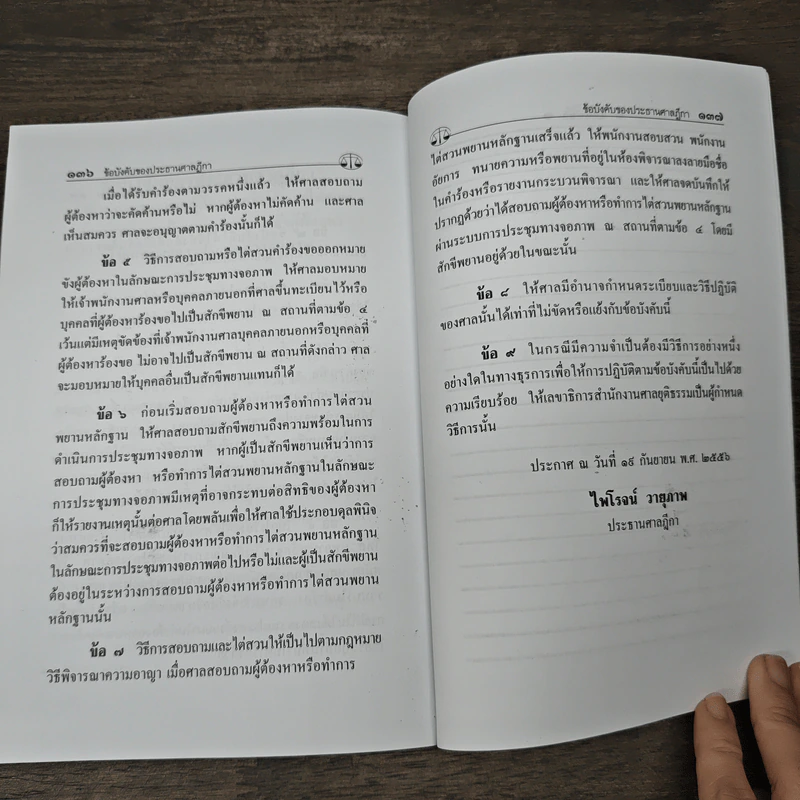 ๑๓๖ ข้อบังคับของประธานศาลฎีกา
เมื่อได้รับคำร้องตามวรรคหนึ่งแล้ว ให้ศาลสอบถาม
ผู้ต้องหาว่าจะคัดค้านหรือไม่ หากผู้ต้องหาไม่คัดค้าน และศาล
เห็นสมควร ศาลจะอนุญาตตามคำร้องนั้นก็ได้
ข้อ ๕ วิธีการสอบถามหรือไต่สวนคำร้องขอออกหมาย
ขังผู้ต้องหาในลักษณะการประชุมทางจอภาพ ให้ศาลมอบหมาย
ให้เจ้าพนักงานศาลหรือบุคคลภายนอกที่ศาลขึ้นทะเบียนไว้หรือ
บุคคลที่ผู้ต้องหาร้องขอไปเป็นสักขีพยาน ณ สถานที่ตามข้อ ๔
เว้นแต่มีเหตุขัดข้องที่เจ้าพนักงานศาลบุคคลภายนอกหรือบุคคลที่
ผู้ต้องหาร้องขอ ไม่อาจไปเป็นสักขีพยาน ณ สถานที่ดังกล่าว ศาล
จะมอบหมายให้บุคคลอื่นเป็นสักขีพยานแทนก็ได้
ข้อ ๖ ก่อนเริ่มสอบถามผู้ต้องหาหรือทำการไต่สวน
พยานหลักฐาน ให้ศาลสอบถามสักขีพยานถึงความพร้อมในการ
ดำเนินการประชุมทางจอภาพ หากผู้เป็นสักขีพยานเห็นว่าการ
สอบถามผู้ต้องหา หรือทำการไต่สวนพยานหลักฐานในลักษณะ
การประชุมทางจอภาพมีเหตุที่อาจกระทบต่อสิทธิของผู้ต้องหา
ก็ให้รายงานเหตุนั้นต่อศาลโดยพลันเพื่อให้ศาลใช้ประกอบดุลพินิจ
ว่าสมควรที่จะสอบถามผู้ต้องหาหรือทำการไต่สวนพยานหลักฐาน
ในลักษณะการประชุมทางจอภาพต่อไปหรือไม่และผู้เป็นสักขีพยาน
ต้องอยู่ในระหว่างการสอบถามผู้ต้องหาหรือทำการไต่สวนพยาน
หลักฐานนั้น
ข้อ ๗ วิธีการสอบถามและไต่สวนให้เป็นไปตามกฎหมาย
วิธีพิจารณาความอาญา เมื่อศาลสอบถามผู้ต้องหาหรือทำการ
ข้อบังคับของประธานศาลฎีกา ๑๓๗
ไต่สวนพยานหลักฐานเสร็จแล้ว ให้พนักงานสอบสวน พนักงาน
อัยการ ทนายความหรือพยานที่อยู่ในห้องพิจารณาลงลายมือชื่อ
ในคำร้องหรือรายงานกระบวนพิจารณา และให้ศาลจดบันทึกให้
ปรากฏด้วยว่าได้สอบถามผู้ต้องหาหรือทำการไต่สวนพยานหลักฐาน
ผ่านระบบการประชุมทางจอภาพ ณ สถานที่ตามข้อ ๔ โดยมี
สักขีพยานอยู่ด้วยในขณะนั้น
ข้อ ๘ ให้ศาลมีอำนาจกำหนดระเบียบและวิธีปฏิบัติ
ของศาลนั้นได้เท่าที่ไม่ขัดหรือแย้งกับข้อบังคับนี้
ข้อ ๙ ในกรณีมีความจำเป็นต้องมีวิธีการอย่างหนึ่ง
อย่างใดในทางธุรการเพื่อให้การปฏิบัติตามข้อบังคับนี้เป็นไปด้วย
ความเรียบร้อย ให้เลขาธิการสำนักงานศาลยุติธรรมเป็นผู้กำหนด
วิธีการนั้น
ประกาศ ณ วันที่ ๑๙ กันยายน พ.ศ. ๒๕๕๖
ไพโรจน์ วายุภาพ
ประธานศาลฎีกา